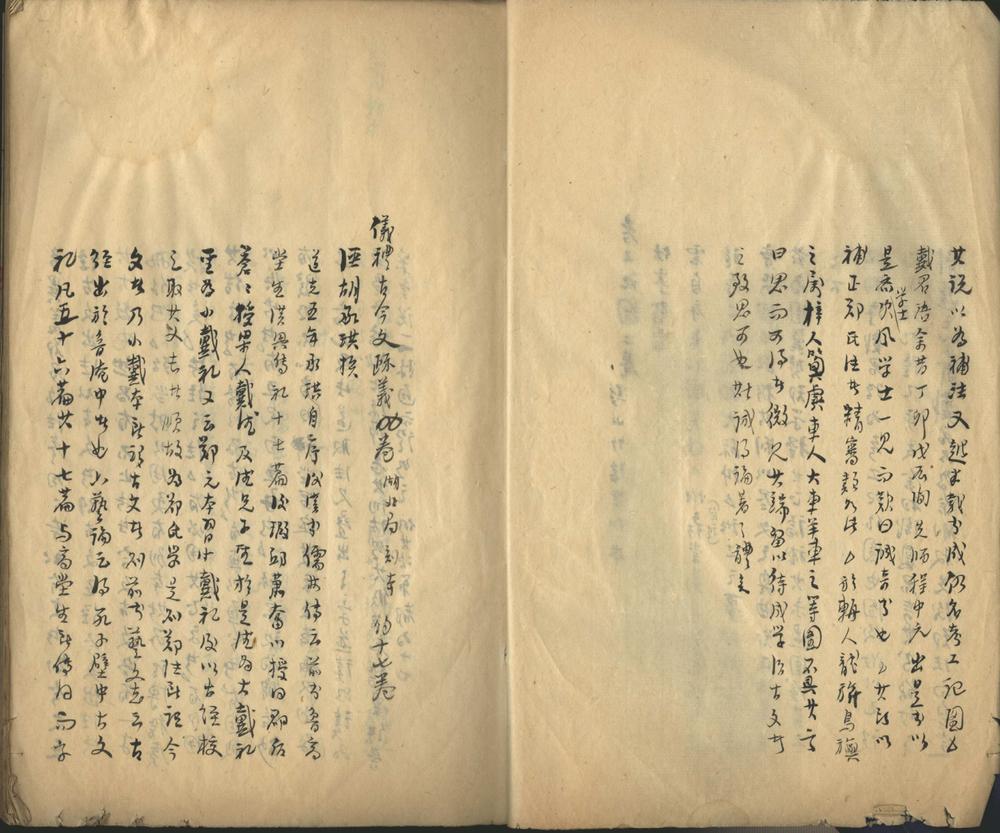 其說以為補注又越半載書成仍名考工記圖云
戴君語余昔丁卯戊辰間先師程中允出是書以
示齊學士次風學士一見而歎曰誠奇書也其所以
補正鄭氏注者精審類如此於輈人龍旂鳥旟
之屬梓人筍虡車人大車羊車之等圖不具其言
曰思而可得者微見其端留以待成學治古文者
之致思可也誠得論著之體矣
儀禮古今文疏義卷湖北局刻本約十七卷
涇胡承珙撰
道光五年承珙自序後漢書儒林傳云前書魯高
堂生漢興傳禮十七篇後瑕邱蕭奮以授同郡后
蒼蒼授梁人戴德及德兄子聖於是德為大戴禮
聖為小戴禮又云鄭元本習小戴禮後以古經校
之取其義長者順故為鄭氏學是則鄭注所謂今
文者乃小戴本所謂古文者則前書藝文志云古
經出於魯淹中者也六藝論云得孔子壁中古文
禮凡五十六篇其十七篇與高堂生所傳同而字